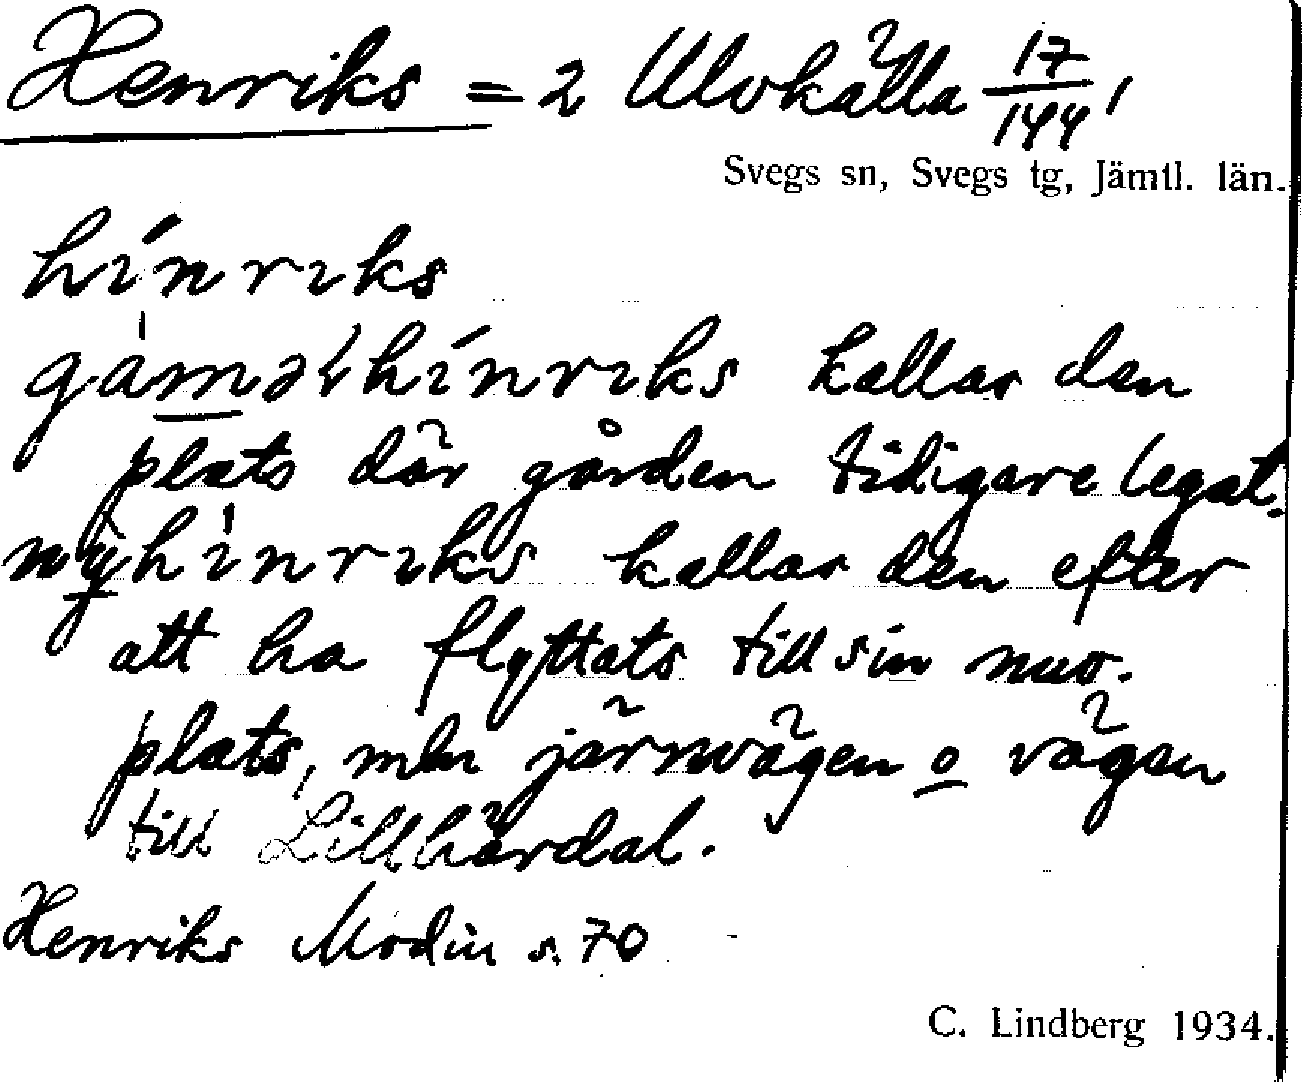 Henriks = 2 Ulvkälla 17/144,
Svegs sn, Svegs tg, Jämtl. län.
hínrıks
gáməłhínrıks kallas den
plats där gården tidigare legat.
nỳhìnrıks kallas den efter
att ha flyttats till sin nuv.
plats, mln järnvägen o vägen
till Lillhärdal.
Henriks Modin s. 70
C. Lindberg 1934.